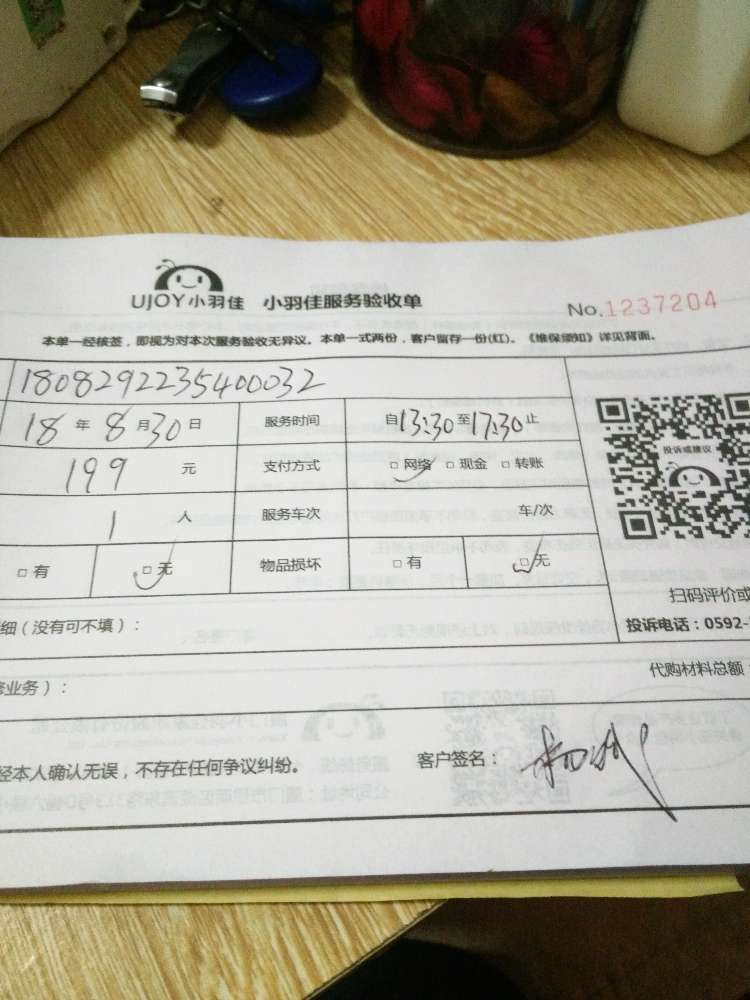 UJOY小羽佳 小羽佳服务验收单 No.1237204
本单一经核签，即视为对本次服务验收无异议。本单一式两份，客户留存一份(红)。《维保须知》详见背面。
1808292235400032
18年8月30日 服务时间 自13:30至17:30止
199元 支付方式 □网络 □现金 □转账
1人 服务车次 车/次
□有 □无 物品损坏 □有 □无
投诉或建议
扫码评价或
细（没有可不填）： 投诉电话：0592-
业务）： 代购材料总额：
经本人确认无误，不存在任何争议纠纷。 客户签名：